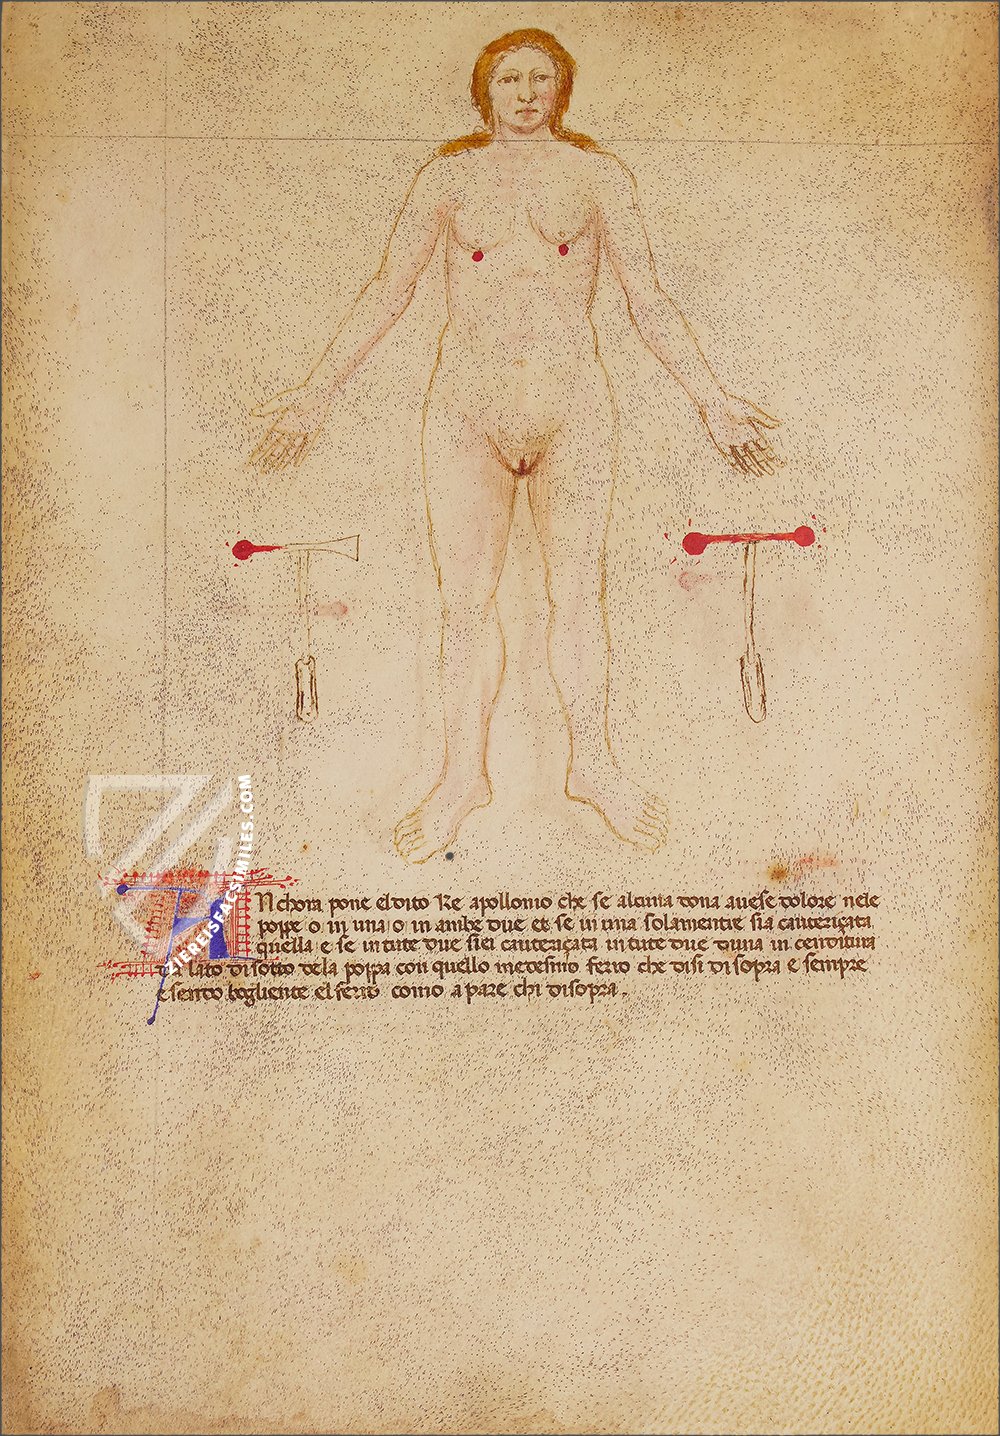 ZIEREISFACSIMILES.COM
Anchora pone el dito Re apollonio che se alcuna dona auese dolore nele
poppe o in una o in ambe due et se in una solamente sia cauteriçata
quella e se in tute due siei cauteriçata in tute due duna in cenditura
da lato di sotto dela poppa con quello medesmo ferro che disi di sopra e sempre
esendo bogliente el ferro como apare chi disopra.